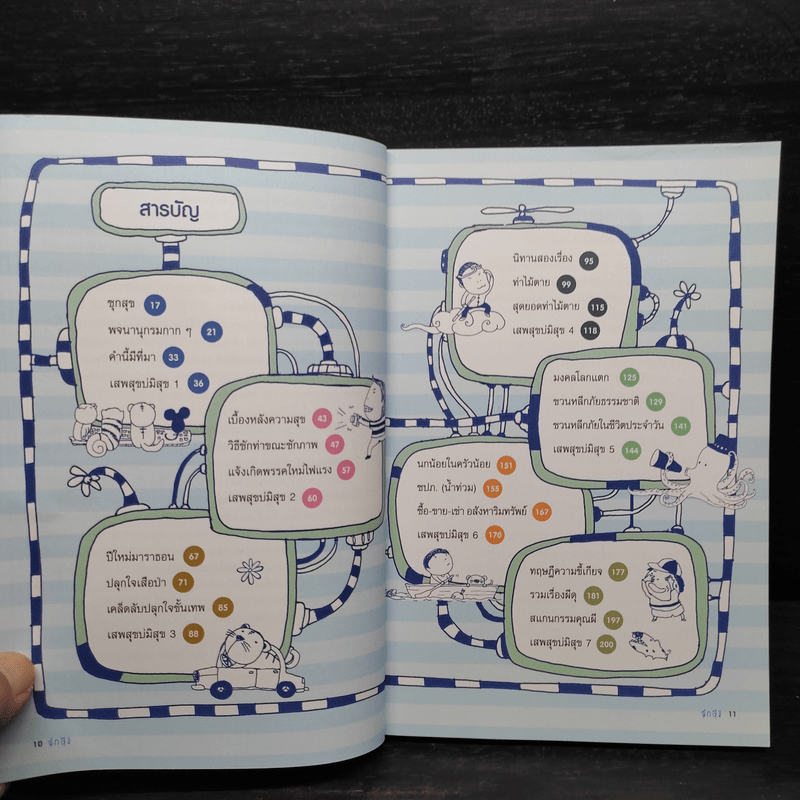 สารบัญ
ซุกสุข 17
พจนานุกรมกาก ๆ 21
คำนี้มีที่มา 33
เสพสุขบ่มิสุข 1 36
เบื้องหลังความสุข 43
วิธีชักท่าขณะชักภาพ 47
แจ้งเกิดพรรคใหม่ไฟแรง 57
เสพสุขบ่มิสุข 2 60
ปีใหม่มาราธอน 67
ปลุกใจเสือป่า 71
เคล็ดลับปลุกใจขั้นเทพ 85
เสพสุขบ่มิสุข 3 88
10
นิทานสองเรื่อง 95
ท่าไม้ตาย 99
สุดยอดท่าไม้ตาย 115
เสพสุขบ่มิสุข 4 118
มงคลโลกแตก 125
ชวนหลีกภัยธรรมชาติ 129
ชวนหลีกภัยในชีวิตประจำวัน 141
เสพสุขบ่มิสุข 5 144
นกน้อยในครัวน้อย 151
ชปภ. (น้ำท่วม) 155
ซื้อ-ขาย-เช่า อสังหาริมทรัพย์ 167
เสพสุขบ่มิสุข 6 170
ทฤษฎีความขี้เกียจ 177
รวมเรื่องผีดุ 181
สแกนกรรมคุณผี 197
เสพสุขบ่มิสุข 7 200
11